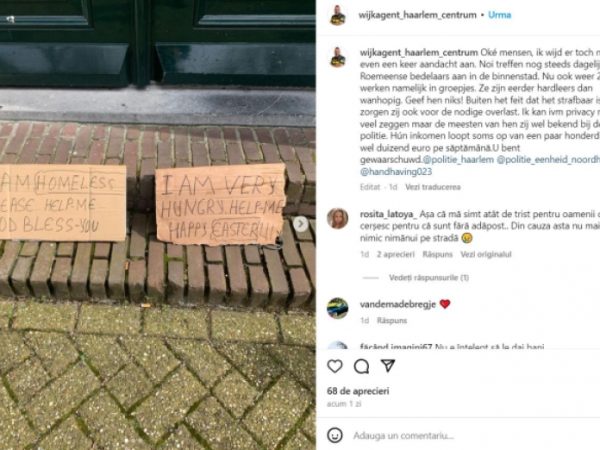 AM HOMELESS
EASE HELP-ME
OD BLESS-YOU
I AM VERY
HUNGRY. HELP-ME
HAPPY EASTER!
wijkagent_haarlem_centrum • Urma
wijkagent_haarlem_centrum Oké mensen, ik wijd er toch m
even een keer aandacht aan. Noi treffen nog steeds dagelij
Roemeense bedelaars aan in de binnenstad. Nu ook weer 2
werken namelijk in groepjes. Ze zijn eerder hardleers dan
wanhopig. Geef hen niks! Buiten het feit dat het strafbaar is
zorgen zij ook voor de nodige overlast. Ik kan ivm privacy n
veel zeggen maar de meesten van hen zij wel bekend bij de
politie. Hún inkomen loopt soms op van een paar honderd
wel duizend euro pe săptămână.U bent
gewaarschuwd.@politie_haarlem @politie_eenheid_noordh
@handhaving023
Editat · 1d Vezi traducerea
rosita_latoya_ Așa că mă simt atât de trist pentru oamenii c
cerșesc pentru că sunt fără adăpost.. Din cauza asta nu mai
nimic nimănui pe stradă
1d 2 aprecieri Răspuns Vezi originalul
Vedeți răspunsurile (1)
vandemadebregje
1d Răspuns
făcând_imagini67 Nu e înțelept să le dai bani
68 de aprecieri
acum 1 zi
Adauga un comentariu...